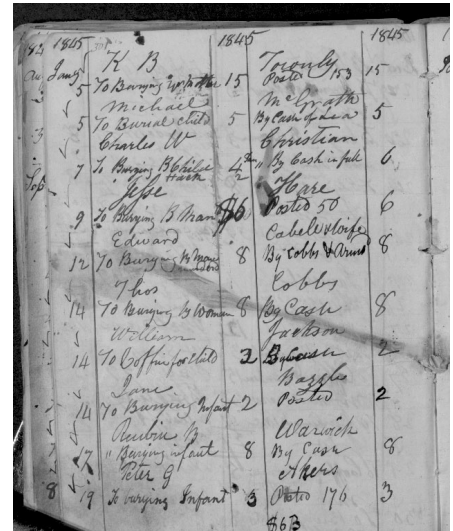 1845 1845 1845
Jany K B Townly
5 To Burying W Mother 15 Posted 153 15
Michael McGrath
5 To Burial child 5 By Cash of 5
Charles W Christian
7 To Burying B Child 4 " By Cash in full 6
Hack 2
Jesse Hare
9 To Burying B Man $6 Posted 50 6
Edward Cabell & Wife
12 To Burying B Man 8 By Cobbs & 8
Thos Cobbs
14 To Burying B Woman 8 By Cash 8
William Jackson
14 To Coffin for child 2 By Cash 2
Jane
14 To Burying Infant 2 Posted 2
Reubin B Warwick
17 " Burying infant 8 By Cash 8
Peter G Akers
19 To burying Infant 3 Posted 176 3
$63